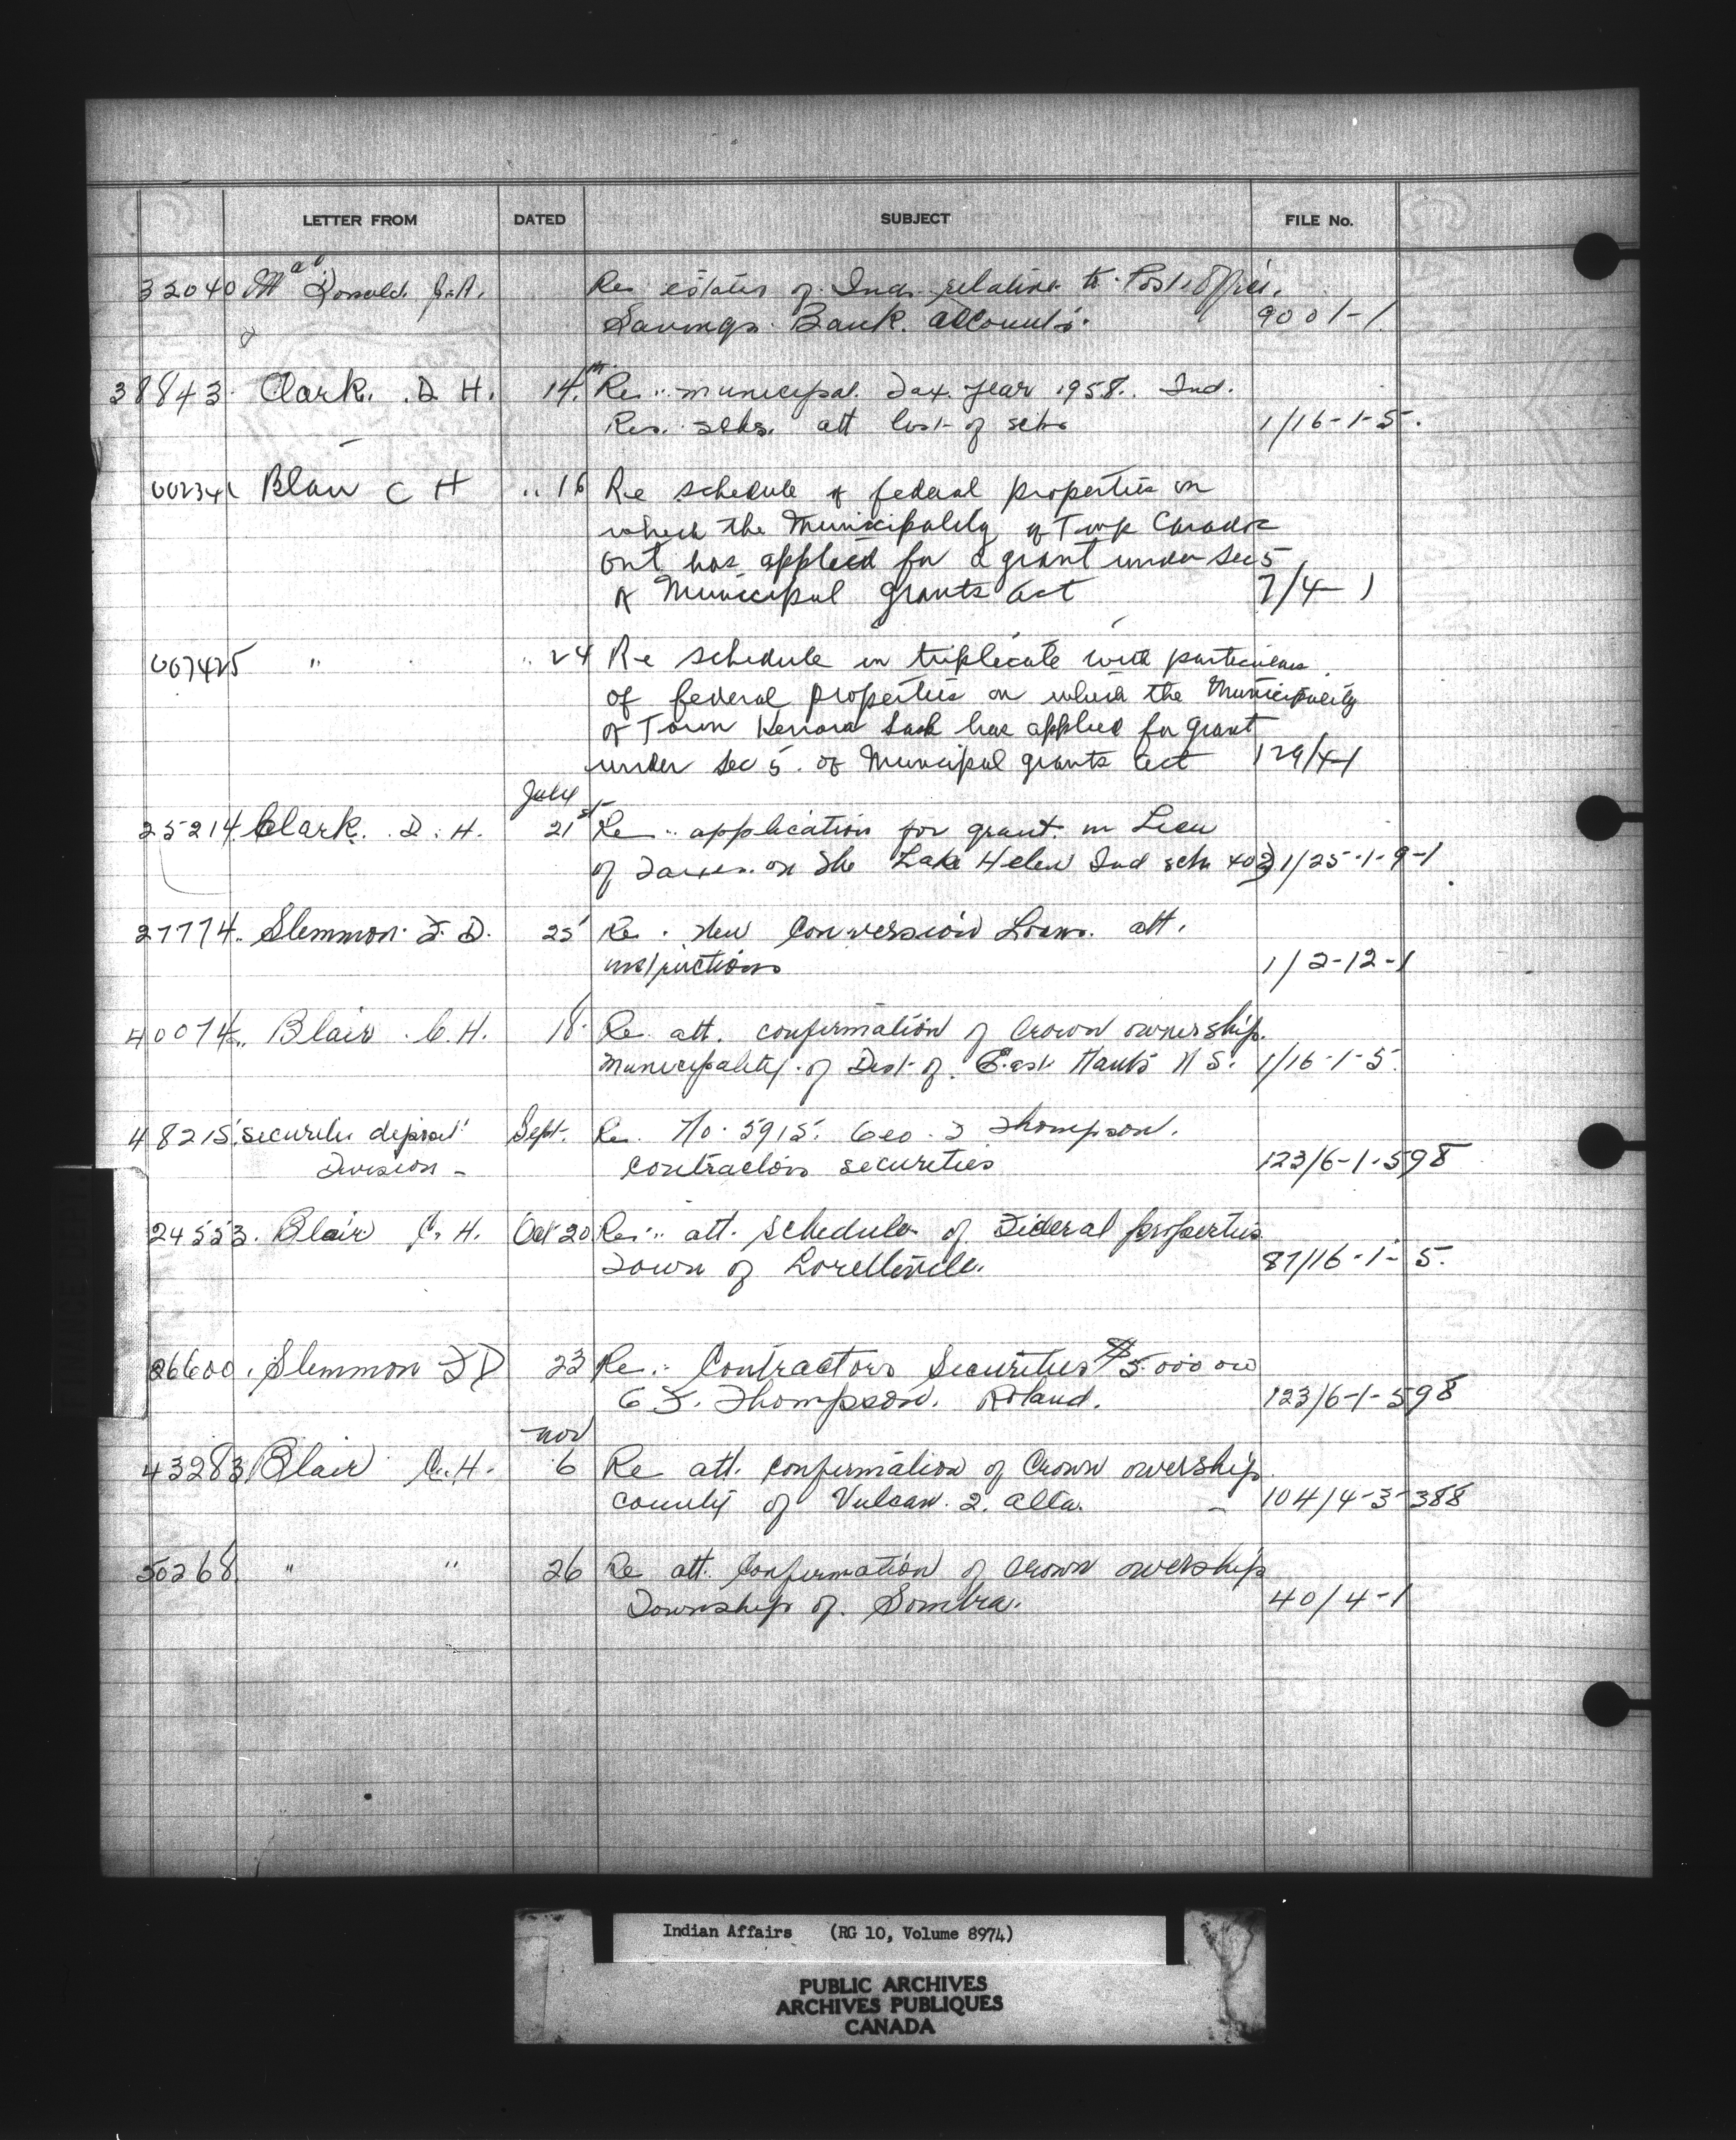 LETTER FROM DATED SUBJECT FILE No.
32040 MacDonald J.A. Re estates of Ind. relative to Post Office.
Savings Bank. accounts. 9001-1
38843. Clark. D H. 14th Re: municipal. Tax. year 1958. Ind.
Res. schs. att list of schs 1/16-1-5.
Blair C H .. 16 Re schedule of federal properties on
which the Municipality of Twp Caradoc
Ont has applied for a grant under Sec 5
of Municipal Grants Act 7/4-1
007425 " .. 24 Re schedule in triplicate with particulars
of federal properties on which the Municipality
of Town Kenora has applied for grant
under Sec 5. of Municipal grants act 129/4-1
July
25214. Clark. D. H. 21st Re: application for grant in Lieu
of Taxes. on the Lake Helen Ind sch 402 1/25-1-9-1
27774. Slemmon F. D. 25 Re. New Conversion Loan. att.
instructions 1/2-12-1
40074. Blair. C. H. 18. Re. att. confirmation of Crown ownership.
Municipality of Dist of. East Hants N S. 1/16-1-5.
48215. securities deposit Sept. Re. No. 5915. Geo. F Thompson.
Division - contractors securities 123/6-1-598
24553. Blair C. H. Oct 20 Re: att. schedule of Federal properties
Town of Loretteville. 87/16-1-5.
26600. Slemmon F D 23 Re: Contractors Securities $5.000 00
G F. Thompson. Roland. 123/6-1-598
Nov
43283 Blair C. H. 6 Re att. confirmation of Crown owership.
county of Vulcan. 2. Alta. - 104/4-3-388
50268 " " 26 Re att. Confirmation of Crown owership
Township of. Sombra. 40/4-1
Indian Affairs (RG 10, Volume 8974)
PUBLIC ARCHIVES
ARCHIVES PUBLIQUES
CANADA